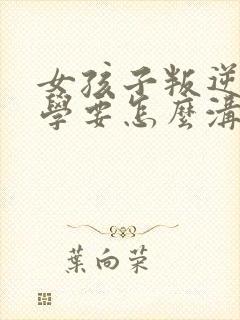 女孩子叛逆
學要怎麼溝
葉向荣